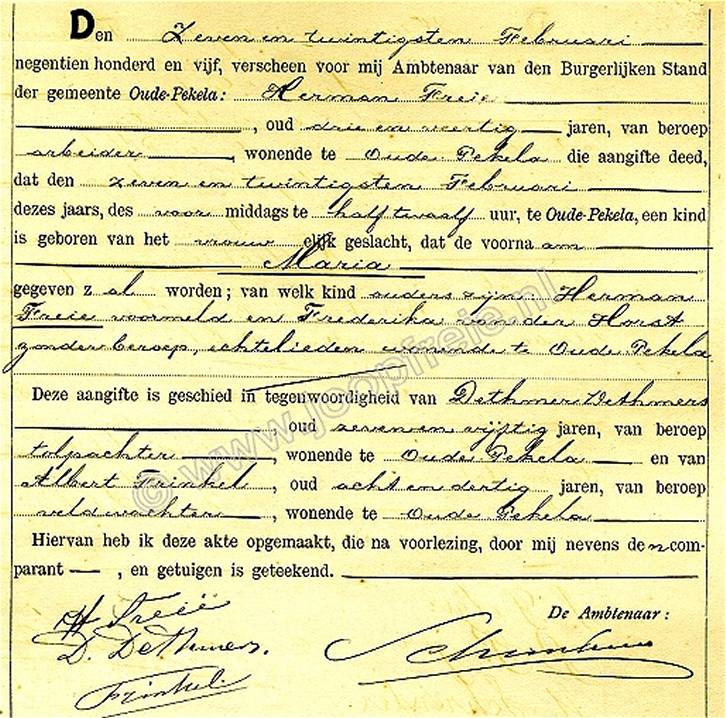 Den Zeven en twintigsten Februari
negentien honderd en vijf, verscheen voor mij Ambtenaar van den Burgerlijken Stand
der gemeente Oude-Pekela: Herman Freie
, oud drie en veertig jaren, van beroep
arbeider, wonende te Oude Pekela die aangifte deed,
dat den zeven en twintigsten Februari
dezes jaars, des voor middags te half twaalf uur, te Oude-Pekela, een kind
is geboren van het vrouw elijk geslacht, dat de voorna am
Maria
gegeven z al worden; van welk kind ouders zijn Herman
Freie voormeld en Frederika van der Horst
zonder beroep, echtelieden wonende te Oude Pekela
Deze aangifte is geschied in tegenwoordigheid van Dethmer Dethmers
, oud zeven en vijftig jaren, van beroep
tolpachter, wonende te Oude Pekela en van
Albert Frinkel, oud acht en dertig jaren, van beroep
veldwachter, wonende te Oude Pekela
Hiervan heb ik deze akte opgemaakt, die na voorlezing, door mij nevens de n com-
parant, en getuigen is geteekend.
H Freië
De Ambtenaar:
D. Dethmers.
Frinkel.
© www.joopfreie.nl